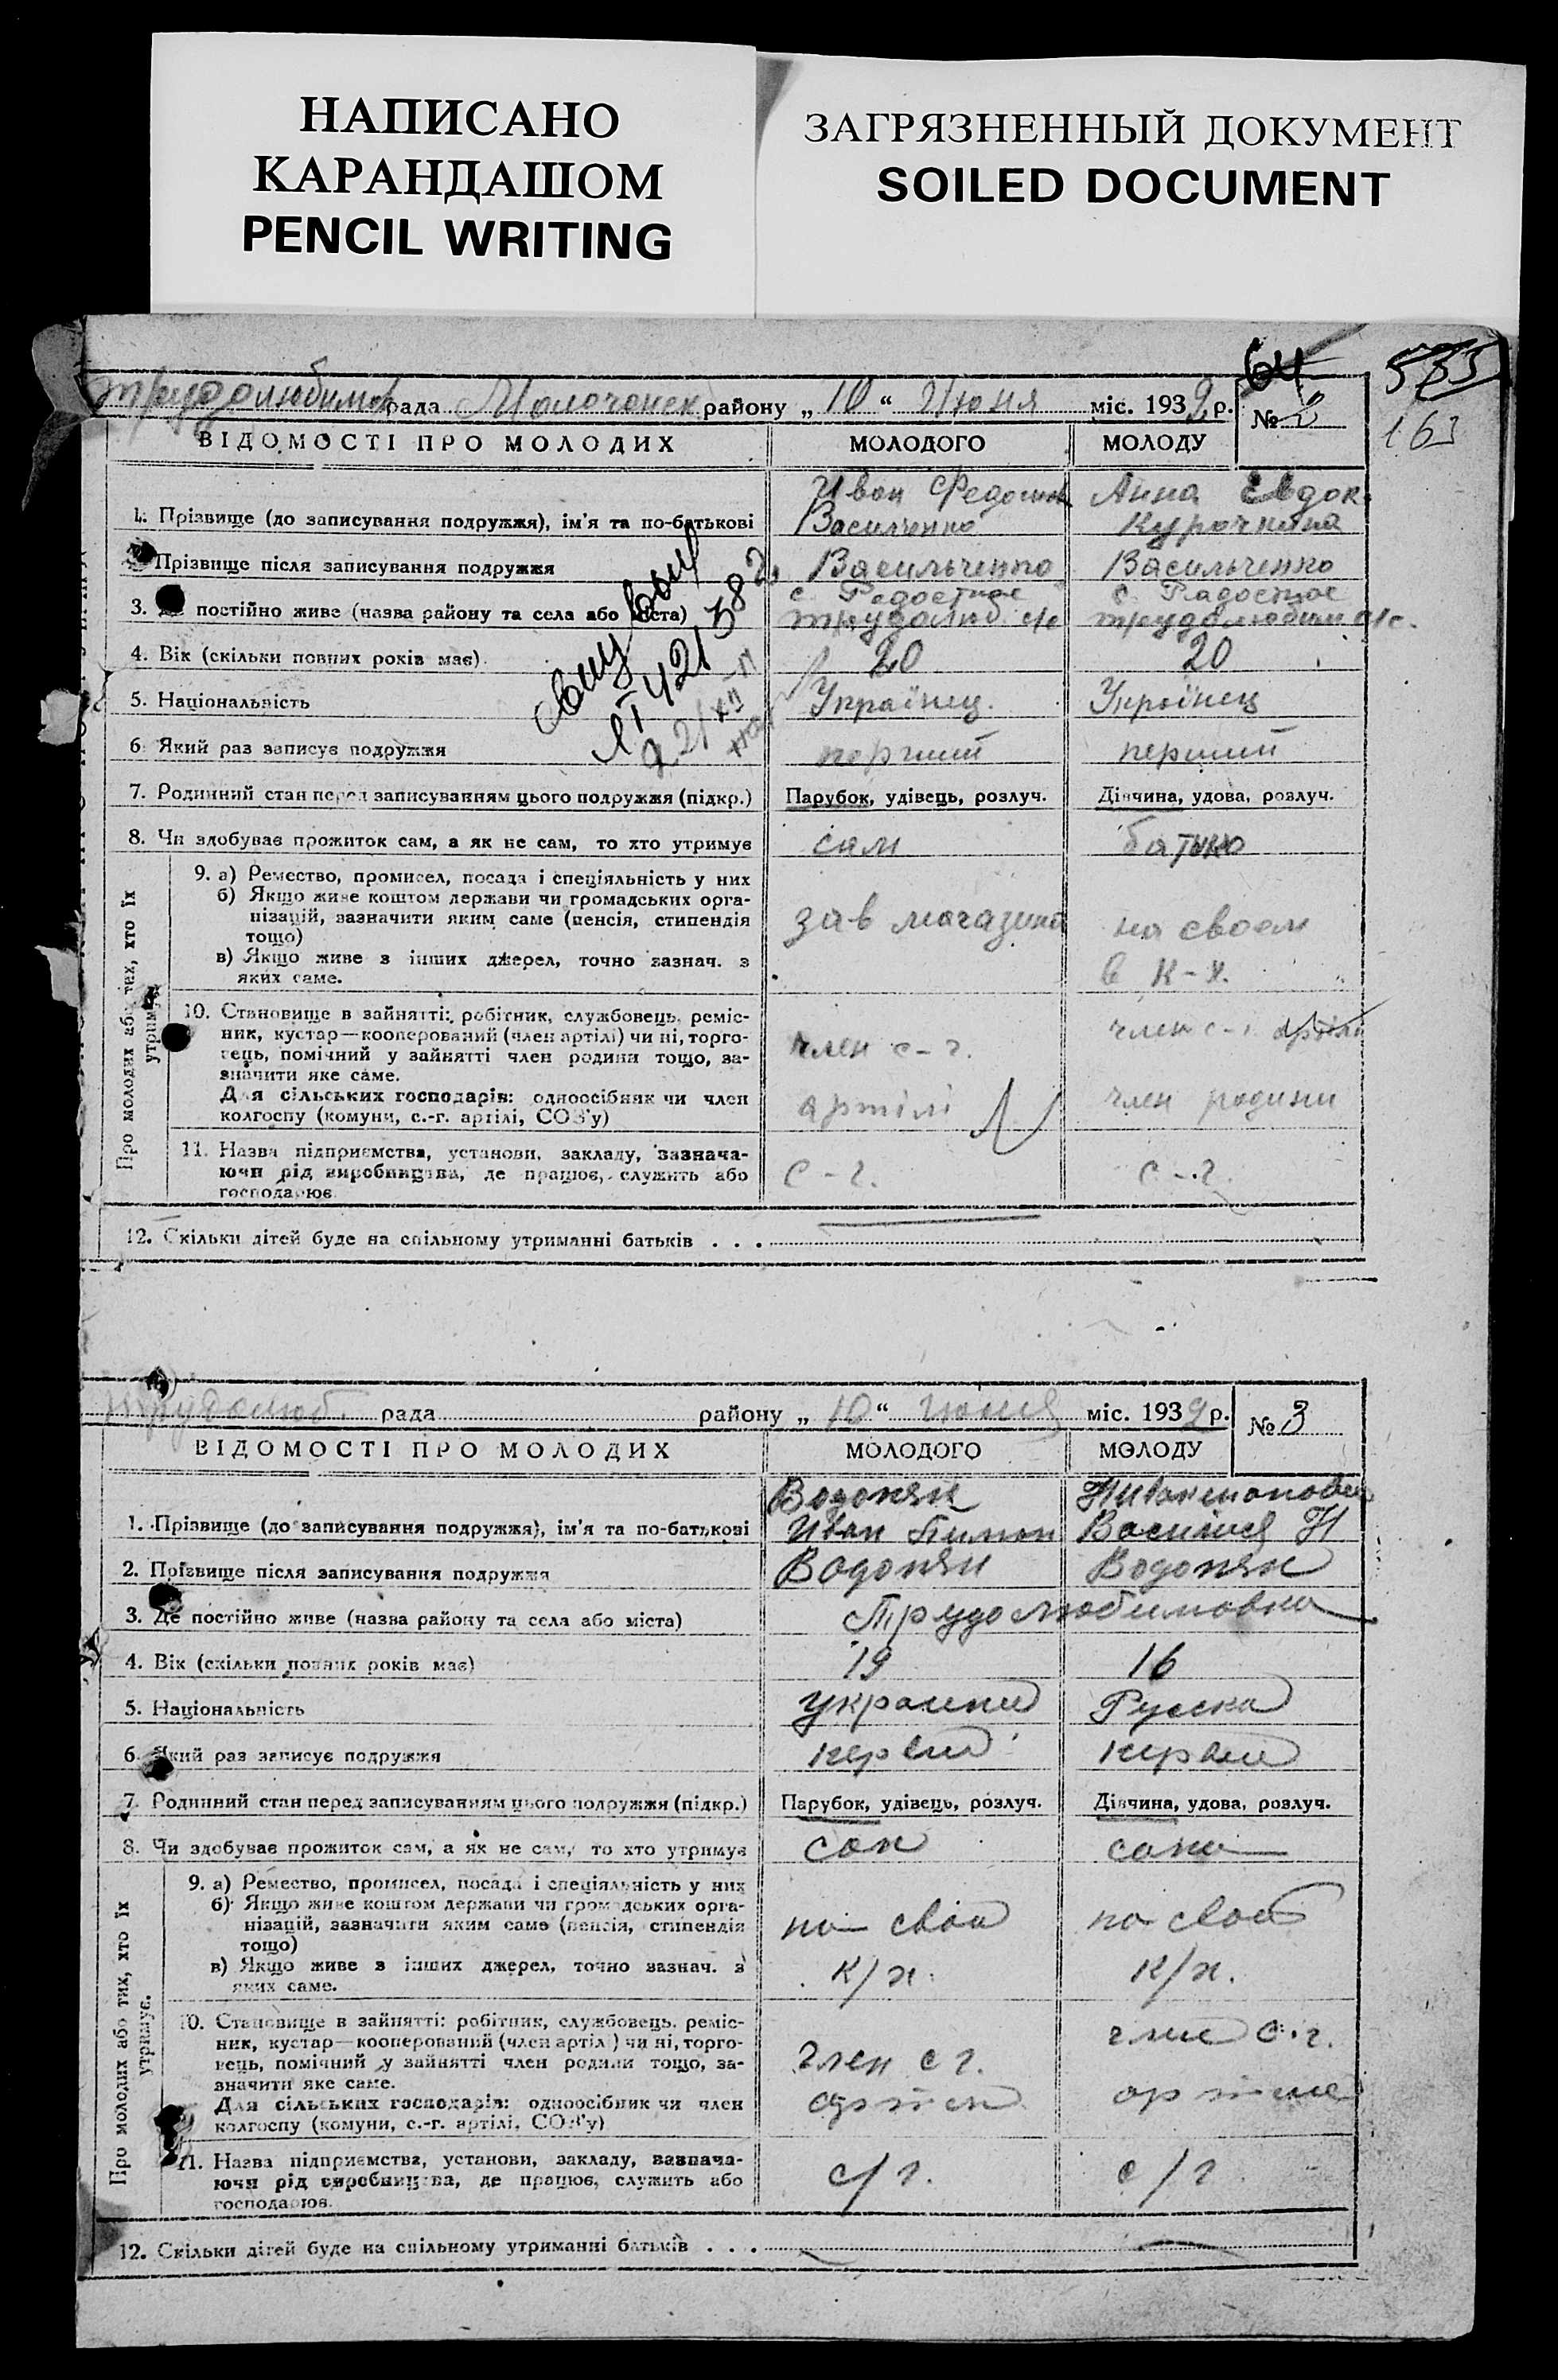 НАПИСАНО
КАРАНДАШОМ
PENCIL WRITING
ЗАГРЯЗНЕННЫЙ ДОКУМЕНТ
SOILED DOCUMENT
64 533
163
рада района „ 10 “ Июня міс. 1939 р. № 2
ВІДОМОСТІ ПРО МОЛОДИХ МОЛОДОГО МОЛОДУ
Иван Анна Евдок.
1. Прізвище (до записування подружжя), ім'я та по-батькові Васильченко Курочкина
Прізвище після записування подружжя Васильченко Васильченко
с. Радостное с. Радостное
3. постійно живе (назва району та села або міста) трудолюб. с/с трудолюбим с/с.
4. Вік (скільки повних років має) 20 20
5. Національність Україїнец. Україїнец
6. Який раз записує подружжя перший перший
7. Родинний стан перед записуванням цього подружжя (підкр.) Парубок, удівець, розлуч. Дівчина, удова, розлуч.
8. Чи здобуває прожиток сам, а як не сам, то хто утримує сам батько
Про молодих або тих, хто їх утримує
9. а) Ремество, промисел, посада і спеціяльність у них
б) Якщо живе коштом держави чи громадських орга-
нізацій, зазначити яким саме (пенсія, стипендія зав магазина на своем
тощо)
в) Якщо живе з інших джерел, точно зазнач. з в к-х.
яких саме.
10. Становище в зайнятті: робітник, службовець, реміс-
ник, кустар—кооперований (член артілі) чи ні, торго- член с-г. член с-г. артілі
вець, помічний у зайнятті член родини тощо, за-
значити яке саме.
Для сільських господарів: одноосібник чи член артілі член родини
колгоспу (комуни, с.-г. артілі, СОЗ'у)
11. Назва підприємства, установи, закладу, зазнача-
ючи рід виробництва, де працює, служить або с-г. с-г.
господарює.
12. Скільки дітей буде на спільному утриманні батьків . . .
трудолюб. рада району „ 10 “ июня міс. 1939 р. № 3
ВІДОМОСТІ ПРО МОЛОДИХ МОЛОДОГО МОЛОДУ
Водопян
1. Прізвище (до записування подружжя), ім'я та по-батькові Иван Василися Н
2. Прізвище після записування подружжя Водопян Водопян
3. Де постійно живе (назва району та села або міста) Трудолюбимовка
4. Вік (скільки повних років має) 19 16
5. Національність Русска
6. Який раз записує подружжя
7. Родинний стан перед записуванням цього подружжя (підкр.) Парубок, удівець, розлуч. Дівчина, удова, розлуч.
8. Чи здобуває прожиток сам, а як не сам, то хто утримує сам сама
Про молодих або тих, хто їх утримує.
9. а) Ремество, промисел, посада і спеціяльність у них
б) Якщо живе коштом держави чи громадських орга-
нізацій, зазначити яким саме (пенсія, стипендія
тощо)
в) Якщо живе з інших джерел, точно зазнач. з к/х. к/х.
яких саме.
10. Становище в зайнятті: робітник, службовець, реміс-
ник, кустар—кооперований (член артілі) чи ні, торго- член с.г.
вець, помічний у зайнятті член родини тощо, за- член с г.
значити яке саме.
Для сільських господарів: одноосібник чи член
колгоспу (комуни, с.-г. артілі, СОЗ'у)
11. Назва підприємства, установи, закладу, зазнача-
ючи рід виробництва, де працює, служить або с/г. с/г
господарює.
12. Скільки дітей буде на спільному утриманні батьків . . .